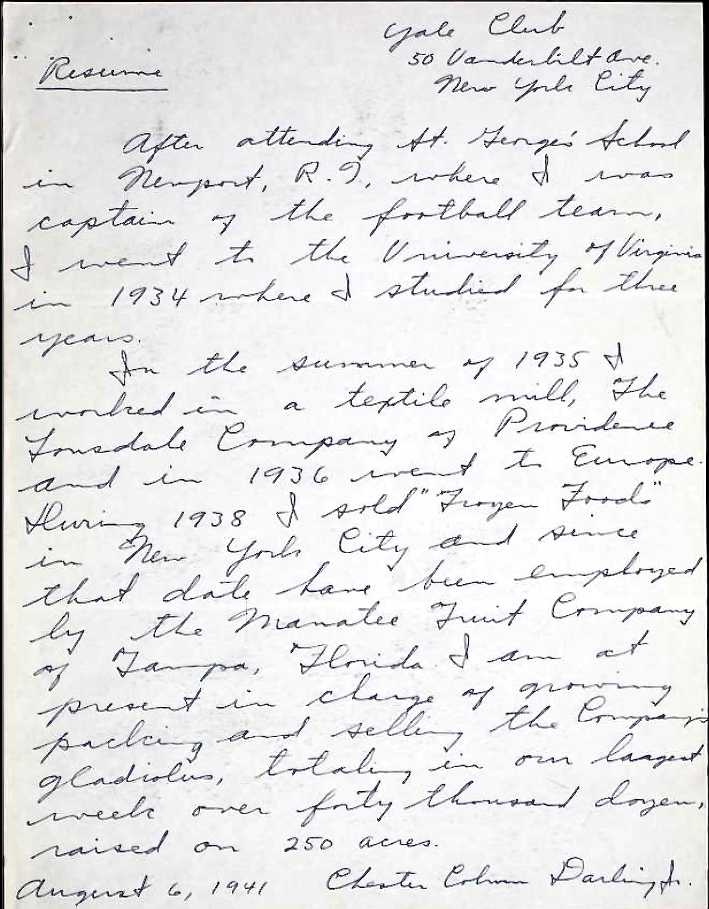 Yale Club
50 Vanderbilt Ave.
New York City
Resume
After attending St. George's School
in Newport, R.I., where I was
captain of the football team,
I went to the University of Virginia
in 1934 where I studied for three
years.
In the summer of 1935 I
worked in a textile mill, The
Lonsdale Company of Providence
and in 1936 went to Europe.
During 1938 I sold "Frozen Foods"
in New York City and since
that date have been employed
by the Manatee Fruit Company
of Tampa, Florida. I am at
present in charge of growing
packing and selling the Company's
gladiolus, totaling in our largest
week over forty thousand dozen,
raised on 250 acres.
August 6, 1941 Chester Darling Jr.